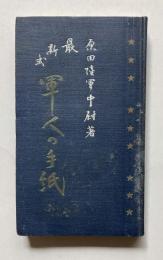 原田陸軍中尉著
最新式
軍人の手紙